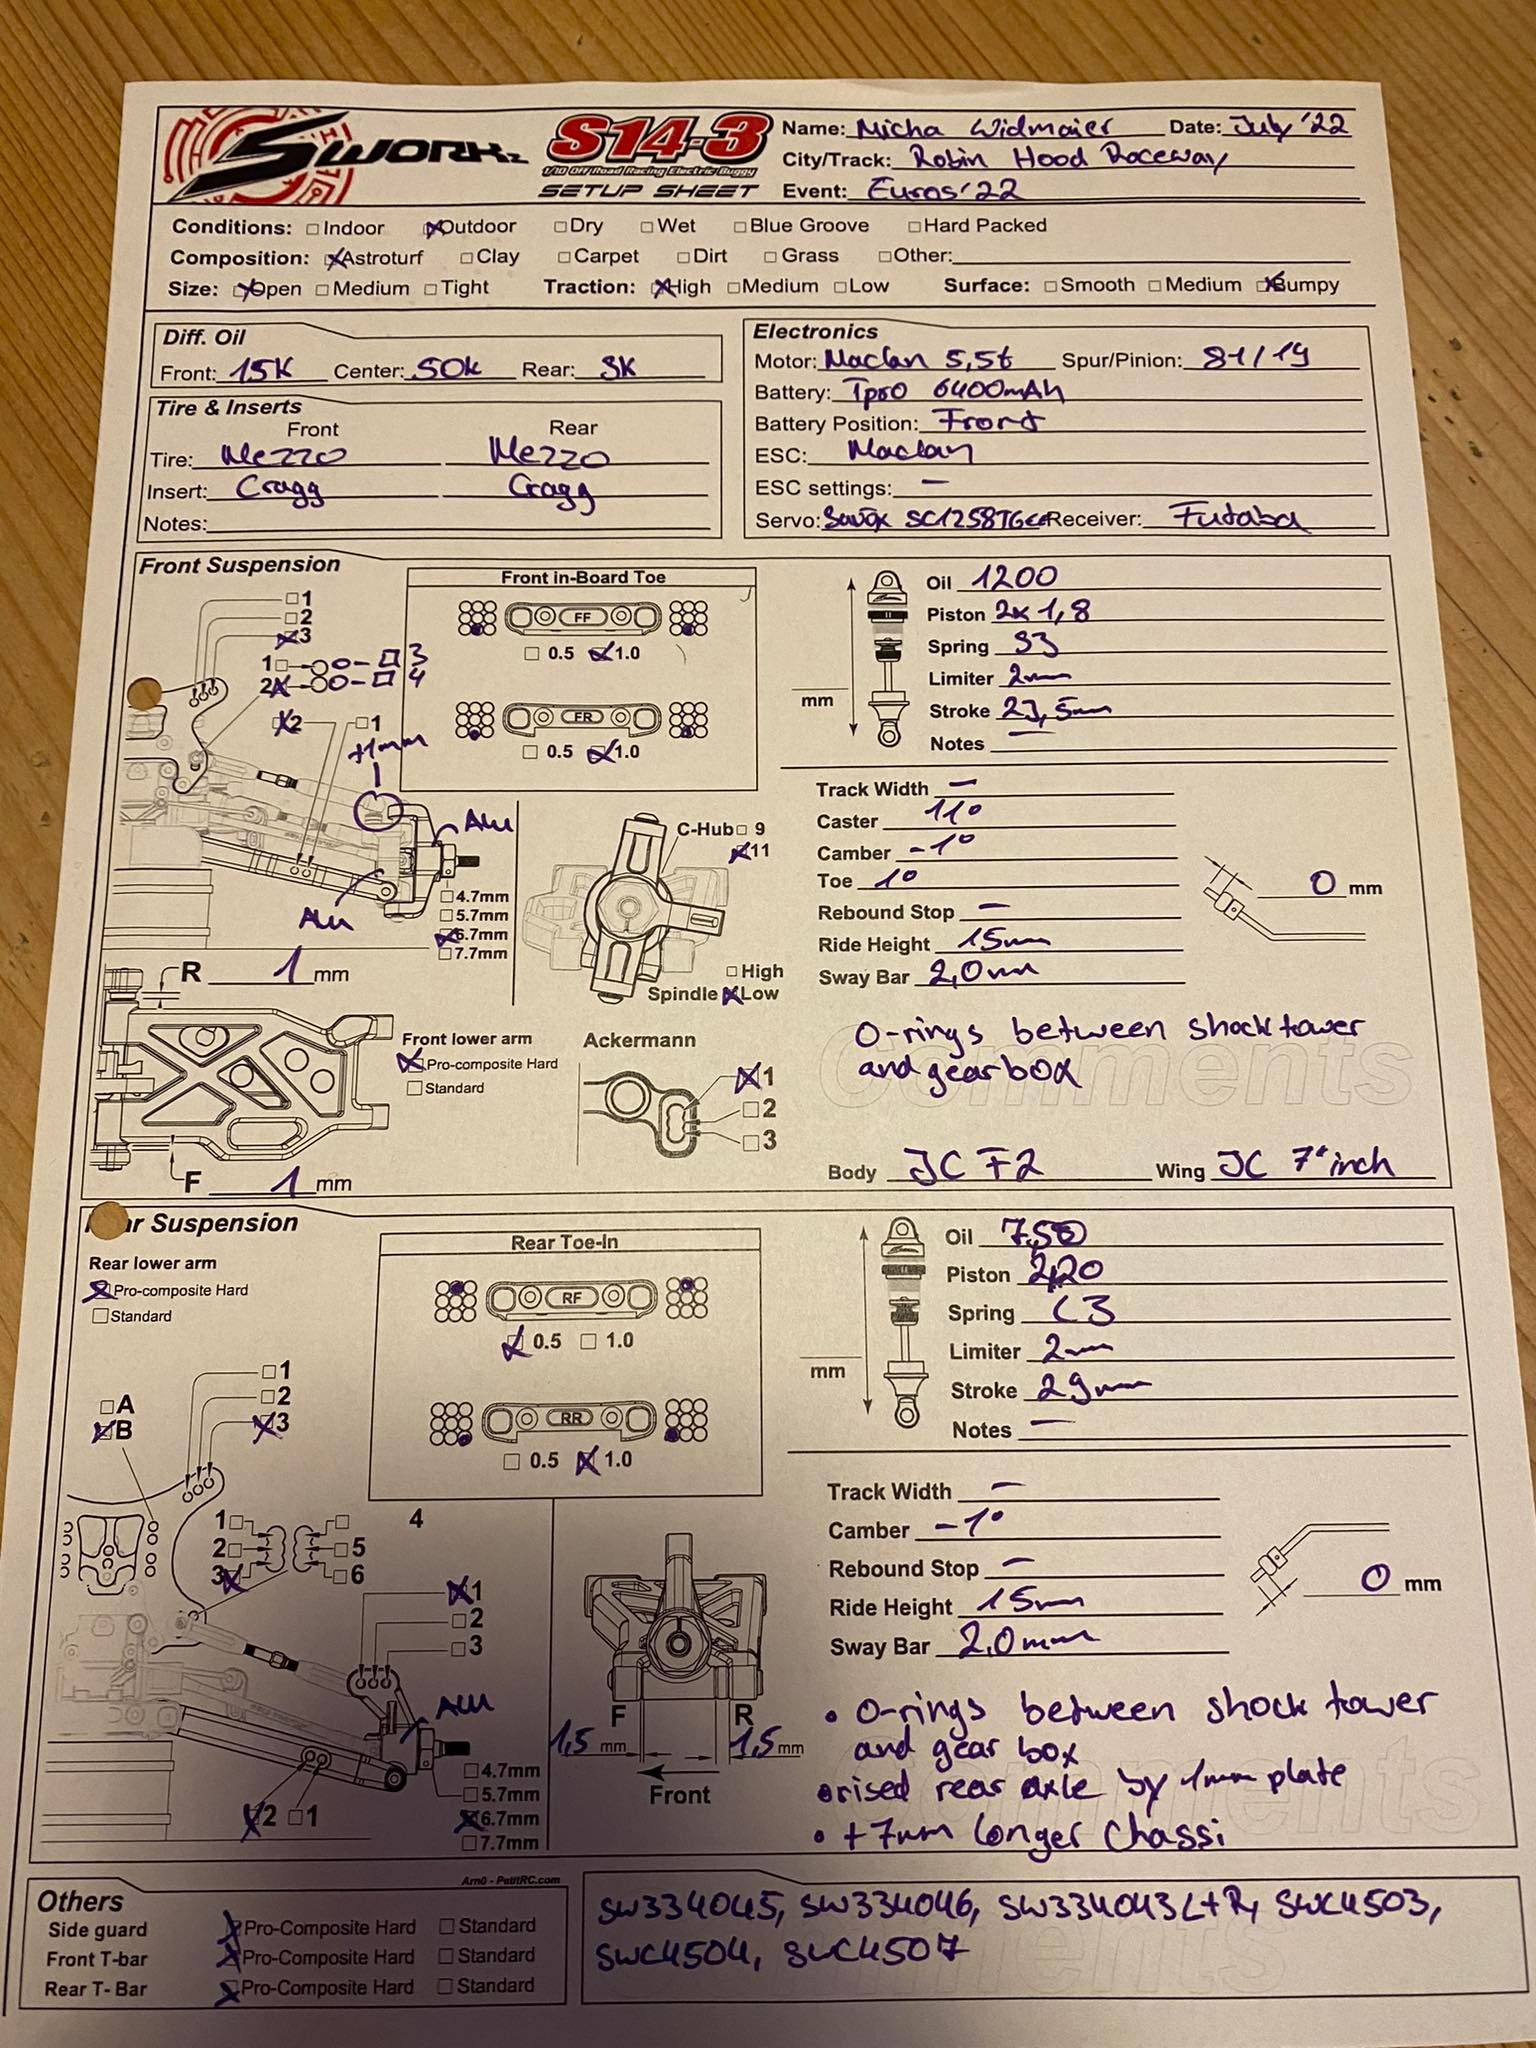 SWORKz S14-3 Name: Micha Widmaier Date: July '22
1/10 Off Road Racing Electric Buggy City/Track: Robin Hood Raceway
SETUP SHEET Event: Euros '22
Conditions: Indoor Outdoor Dry Wet Blue Groove Hard Packed
Composition: Astroturf Clay Carpet Dirt Grass Other:
Size: Open Medium Tight Traction: High Medium Low Surface: Smooth Medium Bumpy
Diff. Oil
Front: 15K Center: 50k Rear: 9K
Tire & Inserts
Front Rear
Tire: Mezzo Mezzo
Insert: Cragg Cragg
Notes:
Electronics
Motor: Maclan 5,5t Spur/Pinion: 81/19
Battery: Tpro 6400mAh
Battery Position: Front
ESC: Maclan
ESC settings: –
Servo: Savöx SC1258TG Receiver: Futaba
Front Suspension
1
2
3
1 3
2 4
2 1
+1mm
Alu
Alu
4.7mm
5.7mm
6.7mm
7.7mm
R 1 mm
F 1 mm
Front in-Board Toe
FF
0.5 1.0
FR
0.5 1.0
C-Hub 9
11
High
Spindle Low
Front lower arm
Pro-composite Hard
Standard
Ackermann
1
2
3
mm
Oil 1200
Piston 2x1,8
Spring S3
Limiter 2mm
Stroke 23,5mm
Notes –
Track Width –
Caster 11°
Camber -1°
Toe 1°
Rebound Stop –
Ride Height 15mm
Sway Bar 2,0mm
0 mm
comments
O-rings between shock tower
and gearbox
Body JC F2 Wing JC 7" inch
Suspension
Rear lower arm
Pro-composite Hard
Standard
Rear Toe-In
RF
0.5 1.0
RR
0.5 1.0
1
2
3
A
B
1 4
2 5
3 6
1
2
3
Alu
4.7mm
5.7mm
6.7mm
7.7mm
2 1
F R
1,5 mm 1,5 mm
Front
mm
Oil 750
Piston 2,20
Spring C3
Limiter 2mm
Stroke 29mm
Notes –
Track Width –
Camber -1°
Rebound Stop –
Ride Height 15mm
Sway Bar 2,0mm
0 mm
comments
• O-rings between shock tower
and gear box
• rised rear axle by 1mm plate
• +7mm longer Chassi
Arn0 - PetitRC.com
Others
Side guard Pro-Composite Hard Standard
Front T-bar Pro-Composite Hard Standard
Rear T- Bar Pro-Composite Hard Standard
comments
SW334045, SW334046, SW334043L+R, SWC4503,
SWC4504, SWC4507